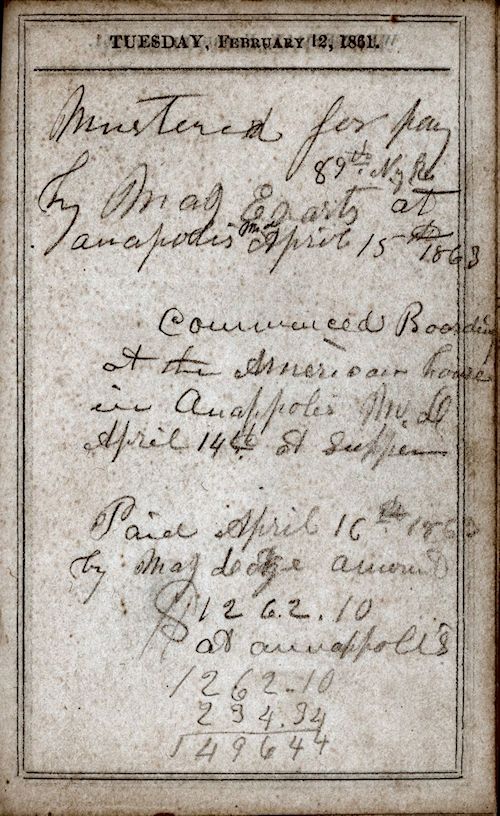 TUESDAY, FEBRUARY 12, 1861.
Mustered for pay
89th. N,y Re
by Maj at
anapolis Md April 15th 1863
Commenced Boarding
at the American house
in Anappolis M.D
April 14th at supper
Paid April 16th 1863
by Maj dodge amount
$1262.10
at annappolis
1262.10
234.34
149644